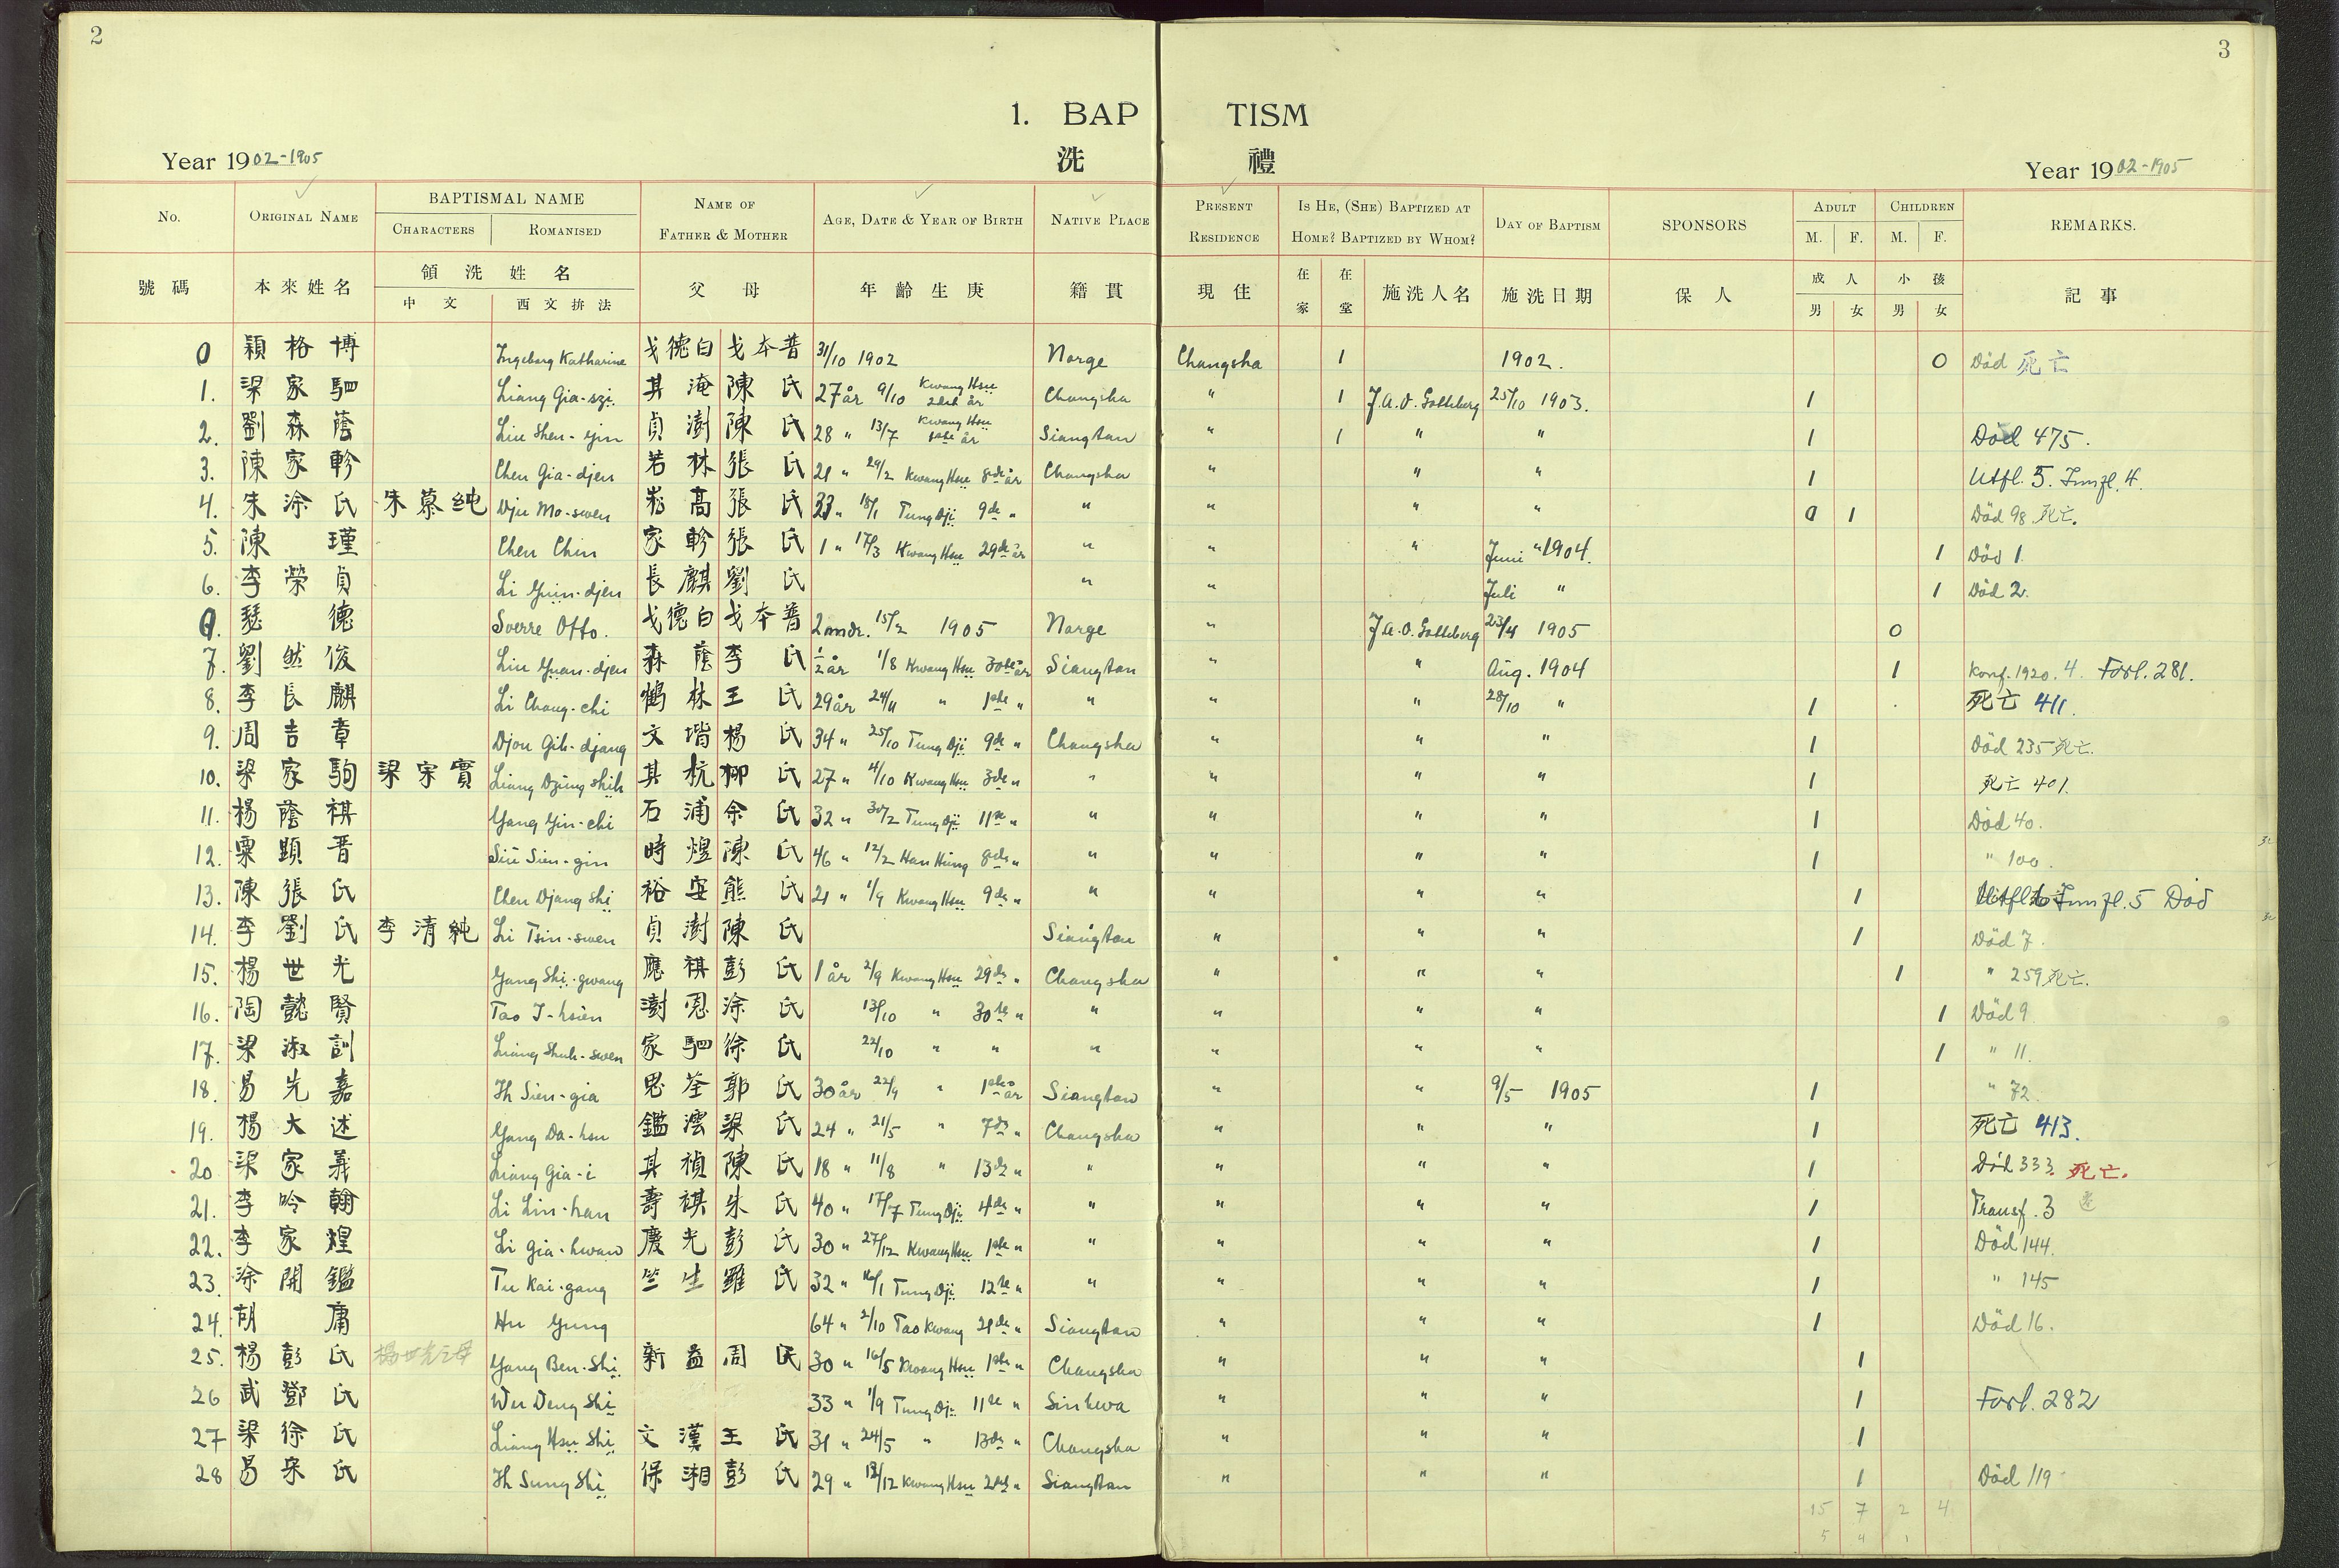 2
3
1. BAP TISM
Year 1902-1905 洗 禮 Year 1902-1905
No. ORIGINAL NAME BAPTISMAL NAME CHARACTERS ROMANISED NAME OF FATHER & MOTHER AGE, DATE & YEAR OF BIRTH NATIVE PLACE PRESENT RESIDENCE IS HE, (SHE) BAPTIZED AT HOME? BAPTIZED BY WHOM? DAY OF BAPTISM SPONSORS ADULT M. F. CHILDREN M. F. REMARKS.
號碼 本來姓名 領洗姓名 中文 西文拚法 父母 年齡生庚 籍貫 現住 在家 在堂 施洗人名 施洗日期 保人 成人 男 女 小孩 男 女 記事
0 穎格博 Ingeborg Katharine 戈德白 戈本普 31/10 1902 Norge Changsha 1 1902. 0 Död 死亡
1. 梁家駟 Liang Gia-szi 其淹 陳氏 27 år 9/10 Kwang Hsu 2det år Changsha " 1 J.A.O. Gotteberg 25/10 1903. 1
2. 劉森蔭 Liu Shen-yin 貞澍 陳氏 28 " 13/7 Kwang Hsu 1ste år Siangtan " 1 " " 1 Död 475.
3. 陳家軫 Chen Gia-djen 若林 張氏 21 " 29/2 Kwang Hsu 8de år Changsha " " " 1 Utfl. 5. Innfl. 4.
4. 朱涂氏 朱慕純 Dju Mo-swen 崧高 張氏 33 " 18/1 Tung Dji 9de " " " " " 0 1 Död 98 死亡.
5. 陳瑾 Chen Chin 家軫 張氏 1 " 17/3 Kwang Hsu 29de år " " " Juni "1904. 1 Död 1.
6. 李榮貞 Li Yuin-djen 長麒 劉氏 " " Juli " 1 Död 2.
0. 瑟德 Sverre Otto. 戈德白 戈本普 2 mdr. 15/2 1905 Norge " J.A.O. Gotteberg 23/4 1905 0
7. 劉然俊 Liu Yuan-djen 森蔭 李氏 ½ år 1/8 Kwang Hsu 30te år Siangtan " " Aug. 1904 1 Konf. 1920. 4. Forl. 281.
8. 李長麒 Li Chang-chi 鶴林 王氏 29 år 24/11 " 1ste " " " " 28/10 " 1 死亡 411.
9. 周吉章 Djou Gih-djang 文堦 楊氏 34 " 25/10 Tung Dji 9de " Changsha " " " 1 Död 235 死亡.
10. 梁家駒 梁宗實 Liang Dzung shih 其杭 柳氏 27 " 4/10 Kwang Hsu 3de " " " " " 1 死亡 401.
11. 楊蔭祺 Yang Yin-chi 石浦 余氏 32 " 30/2 Tung Dji 11te " " " " " 1 Död 40.
12. 粟顯晋 Siu Sien-gin 時煜 陳氏 46 " 12/2 Han Hung 8de " " " " " 1 " 100.
13. 陳張氏 Chen Djang shi 裕安 熊氏 21 " 1/9 Kwang Hsu 9de " " " " " 1 Innfl. 5 Död
14. 李劉氏 李清純 Li Tsin-swen 貞澍 陳氏 Siangtan " " " 1 Död 7.
15. 楊世光 Yang Shi-gwang 應祺 彭氏 1 år 2/9 Kwang Hsu 29de " Changsha " " " 1 " 259 死亡.
16. 陶懿賢 Tao I-hsien 澍恩 涂氏 13/10 " 30te " " " " " 1 Död 9
17. 梁淑訓 Liang Shuh-swen 家駟 徐氏 22/10 " " " " " " 1 " 11.
18. 易先嘉 Ih Sien-gia 思荃 郭氏 30 år 22/9 " 1ste år Siangtan " " 9/5 1905 1 " 72.
19. 楊大述 Yang Da-hsu 鑑澐 梁氏 24 " 21/5 " 7de " Changsha " " " 1 死亡 413.
20 梁家義 Liang Gia-i 其禎 陳氏 18 " 11/8 " 13de " " " " " 1 Död 333. 死亡.
21. 李吟翰 Li Lin-han 壽祺 朱氏 40 " 17/7 Tung Dji 4de " " " " " 1 Transf. 3
22. 李家煌 Li Gia-hwan 慶光 彭氏 30 " 27/12 Kwang Hsu 1ste " " " " " 1 Död 144.
23. 涂開鑑 Tu Kai-gang 竺生 羅氏 32 " 16/1 Tung Dji 12te " " " " " 1 " 145
24. 胡庸 Hu Yung 64 " 2/10 Tao Kwang 21de " Siangtan " " " 1 Död 16.
25. 楊彭氏 楊世光之母 Yang Ben-Shi 新益 周氏 30 " 16/5 Kwang Hsu 1ste " Changsha " " " 1
26 武鄧氏 Wu Deng Shi 33 " 1/9 Tung Dji 11te " Sinhwa " " " 1 Forl. 282
27 梁徐氏 Liang Hsu Shi 文漢 王氏 31 " 24/5 " 13de " Changsha " " " 1
28 易宋氏 Ih Sung Shi 保湘 彭氏 29 " 12/12 Kwang Hsu 2det " Siangtan " " " 1 Död 119
15 7 2 4
5 4 1